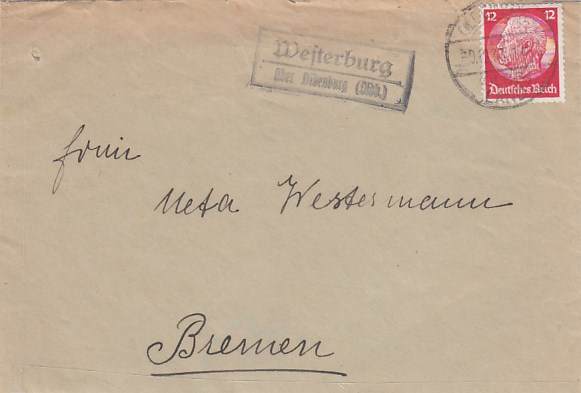 Westerburg
über Oldenburg (Oldb.)
12 12
Deutsches Reich
Meta Westermann
Bremen